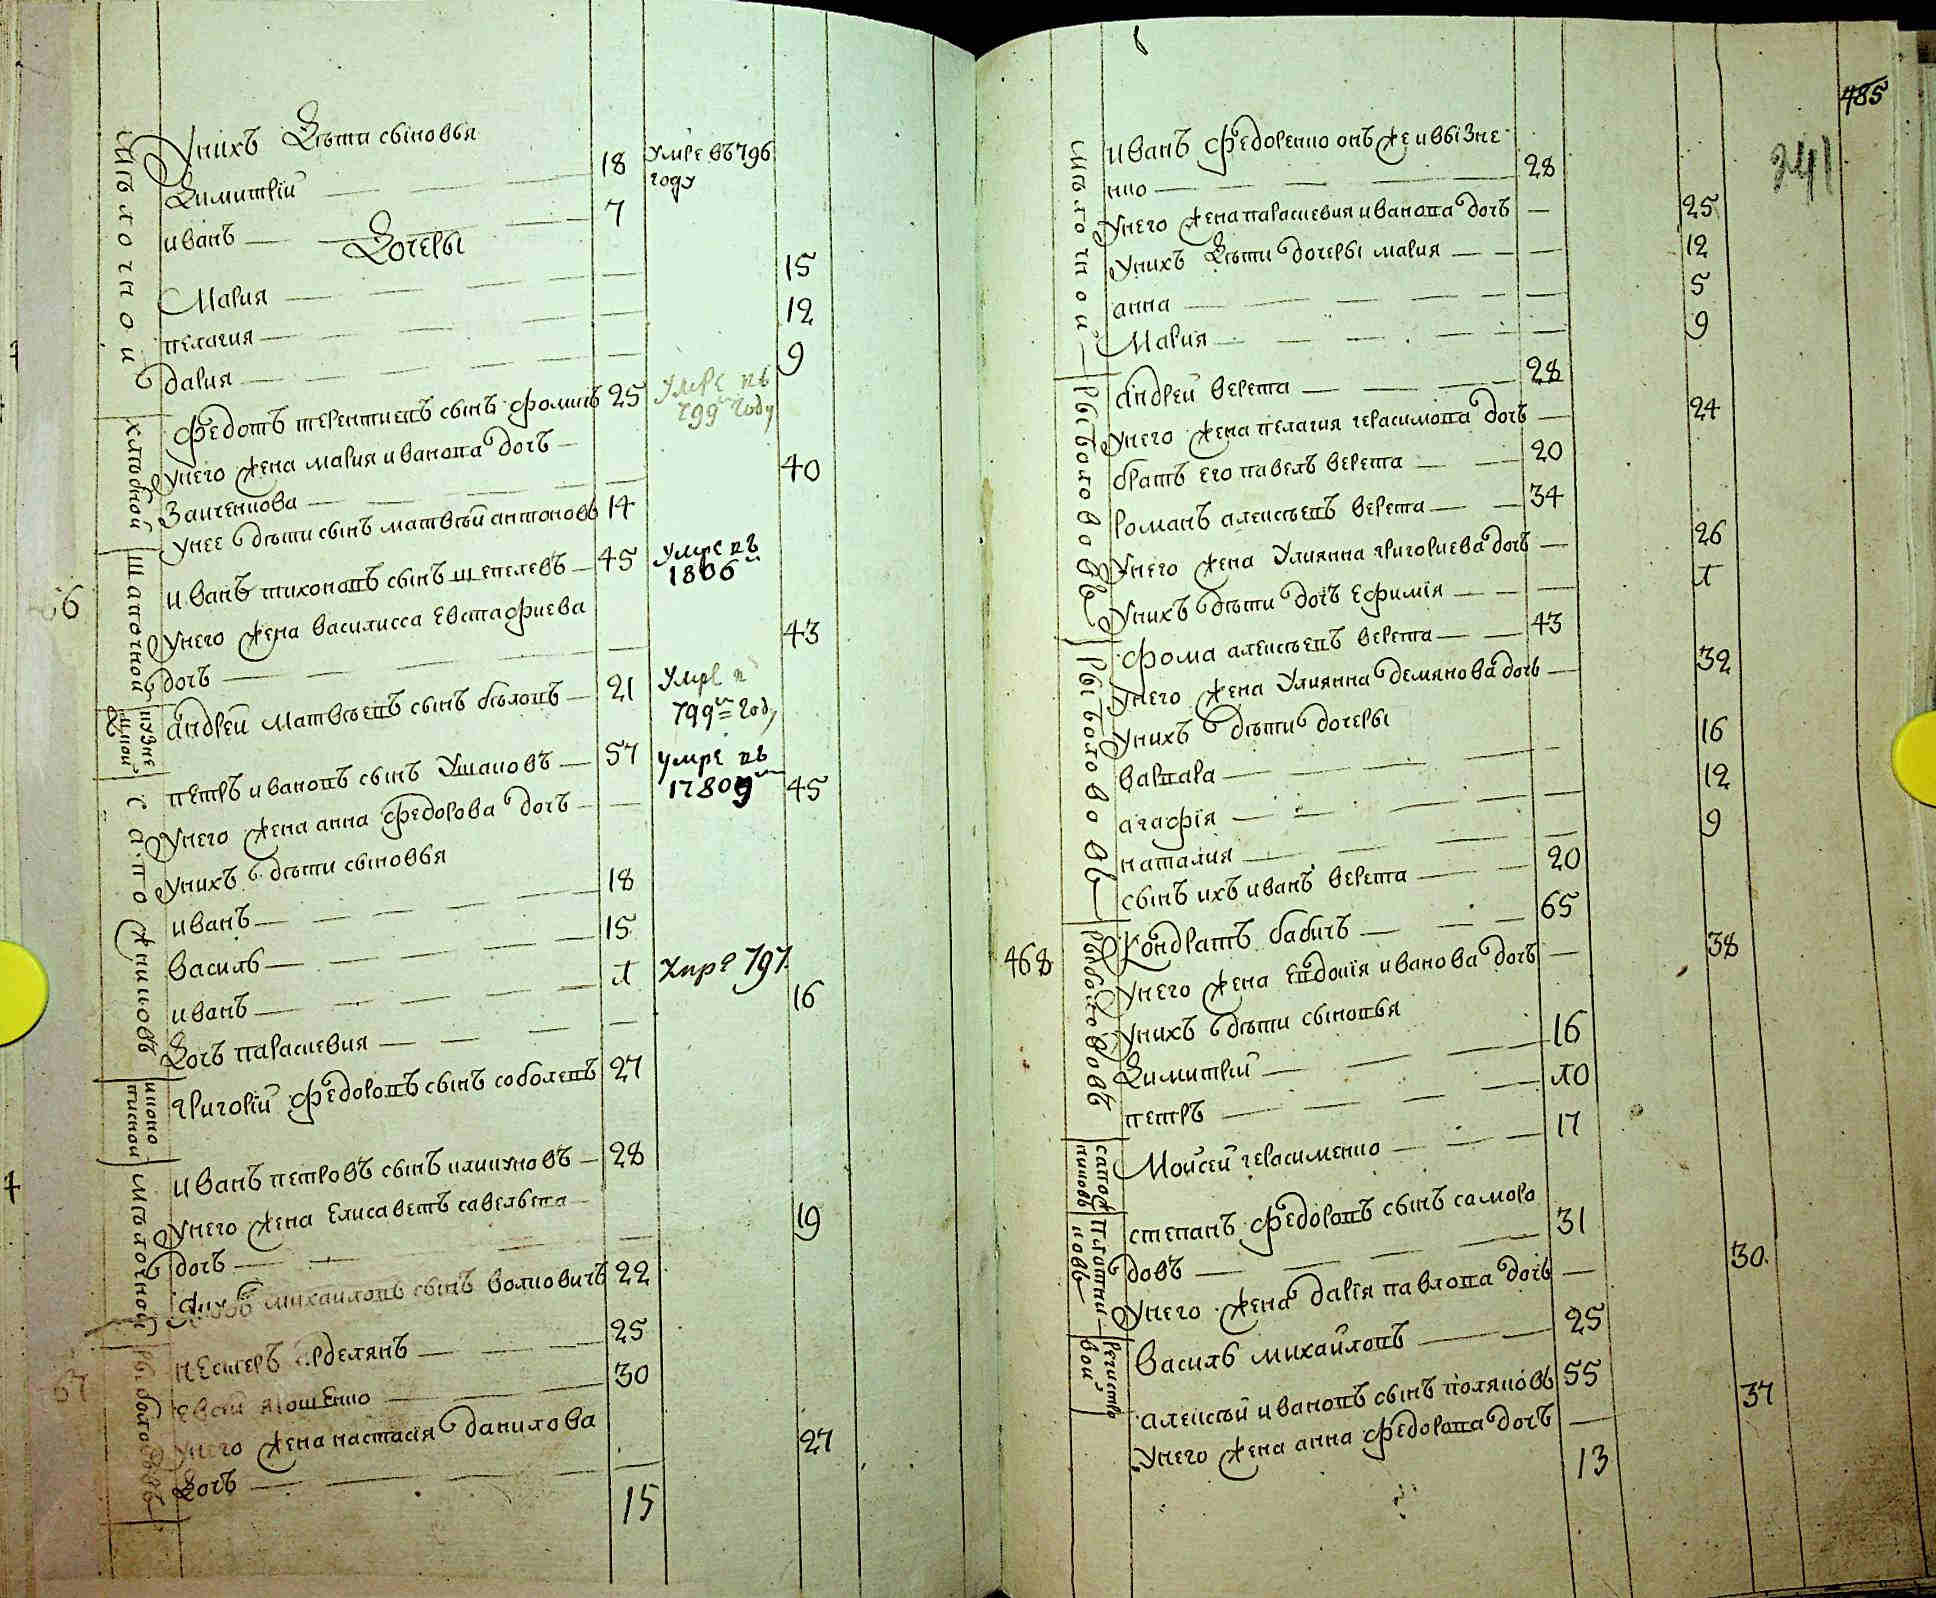 Мѣлочной
У нихъ Дѣти сыновья
Димитрiй 18 Умре въ 796 году
иванъ 7
Дочеры
Мария 15
пелагия 12
дария 9
хлѣбной
федотъ терентиевъ сынъ фоминъ 25 Умре въ 799м году
унего жена мария иванова дочь
Зайченкова 40
унее дѣти сынъ матвѣй антоновъ 14
66
шапочной
иванъ тихоновъ сынъ щепелевъ 45 умре въ 1806м
унего жена василисса евстафиева
дочь 43
кузнечной
андрей матвѣевъ сынъ бѣловъ 21 Умре в 799м году
сапожниковъ
петръ ивановъ сынъ Ушаковъ 57 умре въ 17809м
унего жена анна федорова дочь 45
унихъ дѣти сыновья
иванъ 18
василь 15
иванъ Л 797
Дочь параскевия 16
иконописной
григорiй федоровъ сынъ соболевъ 27
Мѣлочной
иванъ петровъ сынъ кликуновъ 28
унего жена елисаветъ савельева
дочь 19
михаиловъ сынъ волковичъ 22
67
рыболововъ
нестеръ 25
30
унего жена настасiя данилова
Дочь 27
15
485
241
Мѣлочной
иванъ федоренко онъ же и вызне
нко 28
унего жена параскевия иванова дочь 25
унихъ Дѣти дочеры мария 12
анна 5
Мария 9
рыболововъ
андрей верета 28
унего жена пелагия герасимова дочь 24
братъ его павелъ верета 20
романъ алексѣевъ верета 34
унего жена Улиянна григориева дочь 26
унихъ дѣти дочь ефимiя Л
рыболововъ
фома алексѣевъ верета 43
унего жена Улиянна демянова дочь 32
унихъ дѣти дочеры
варвара 16
агафiя 12
наталия 9
сынъ ихъ иванъ верета 20
468
рыболововъ
Кондратъ бабичъ 65
унего жена евдокiя иванова дочь 38
унихъ дѣти сыновья
Димитрiй 16
петръ ЛО
сапожниковъ
Мойсей герасименко 17
плотниковъ
степанъ федоровъ сынъ саморо
довъ 31
унего жена дарiя павлова дочь 30
регистровой
василь михайловъ 25
алексѣй ивановъ сынъ поляковъ 55
унего жена анна федорова дочь 37
13